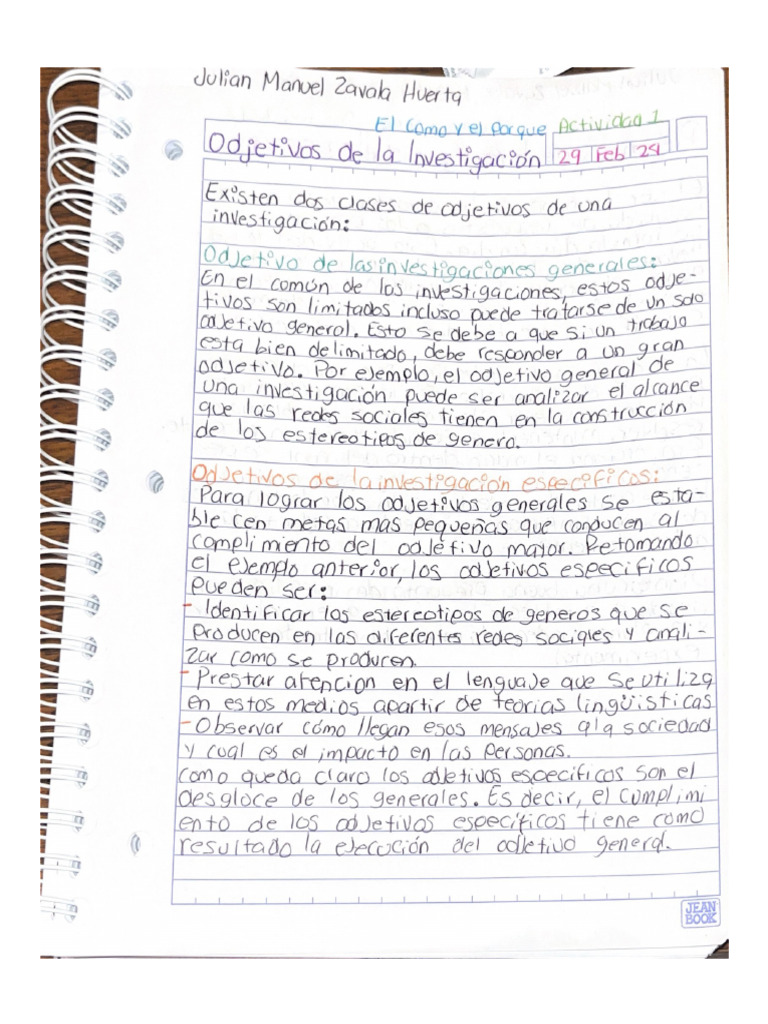 Julian Manuel Zavala Huerta
El Como y el porque Actividad 1
Odjetivos de la Investigación 29 Feb 24
Existen dos clases de odjetivos de una
investigación:
Odjetivo de las investigaciones generales:
En el común de los investigaciones, estos odje-
tivos son limitados incluso puede tratarse de un solo
odjetivo general. Esto se debe a que si un trabajo
esta bien delimitado, debe responder a un gran
odjetivo. Por ejemplo, el odjetivo general de
una investigación puede ser analizar el alcance
que las redes sociales tienen en la construcción
de los estereotipos de genero.
Odjetivos de la investigación especificos:
Para lograr los odjetivos generales se esta-
ble cen metas mas pequeñas que conducen al
complimiento del odjetivo mayor. Retomando
el ejemplo anterior, los odjetivos especificos
pueden ser:
- Identificar los estereotipos de generos que se
producen en las diferentes redes sociales y anali-
zar como se producen.
- Prestar atencion en el lenguaje que se utiliza
en estos medios apartir de teorias lingüisticas
- Observar cómo llegan esos mensajes a la sociedad
y cual es el impacto en las personas.
como queda claro los odjetivos especificos son el
desgloce de los generales. Es decir, el cumplimi
ento de los odjetivos especificos tiene como
resultado la ejecución del odjetivo general.
JEAN
BOOK